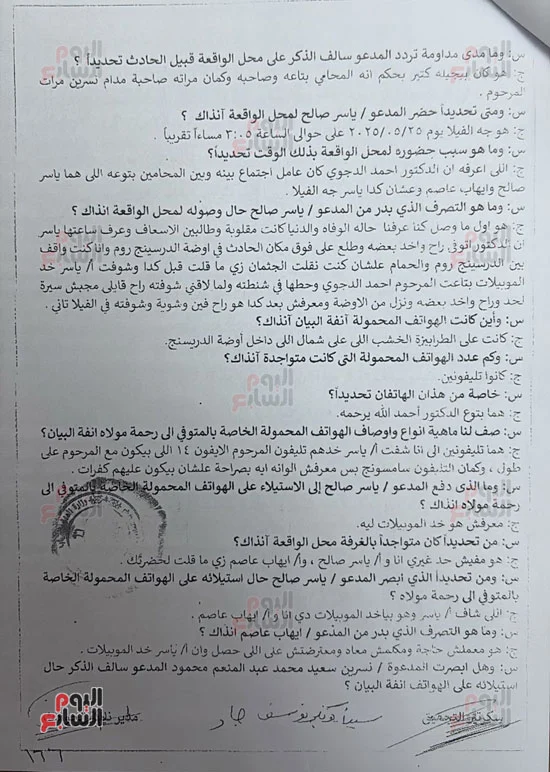 س: وما مدى مداومة تردد المدعو سالف الذكر على محل الواقعة قبيل الحادث تحديداً ؟
ج: هو كان بيجيله كتير بحكم انه المحامي بتاعه وصاحبه وكمان مراته صاحبة مدام نسرين مرات
المرحوم .
س: ومتى تحديداً حضر المدعو / ياسر صالح لمحل الواقعة آنذاك ؟
ج: هو جه الفيلا يوم ٢٠٢٥/٠٥/٢٥ على حوالى الساعة ٣:٠٥ مساءاً تقريباً .
س: وما هو سبب حضوره لمحل الواقعة بذلك الوقت تحديداً؟
ج: اللى اعرفه ان الدكتور احمد الدجوي كان عامل اجتماع بينه وبين المحامين بتوعه اللى هما ياسر
صالح وايهاب عاصم وعشان كدا ياسر جه الفيلا .
س: وما هو التصرف الذي بدر من المدعو / ياسر صالح حال وصوله لمحل الواقعة انذاك؟
ج: هو اول ما وصل كنا عرفنا حاله الوفاه والدنيا كانت مقلوبة وطالبين الاسعاف وعرف ساعتها ياسر
ان الدكتور اتوفي راح واخد بعضه وطلع على فوق مكان الحادث في اوضة الدرسينج روم وانا كنت واقف
بين الدرسينج روم والحمام علشان كنت نقلت الجثمان زي ما قلت قبل كدا وشوفت أ/ ياسر خد
الموبيلات بتاعت المرحوم احمد الدجوي وحطها في شنطته ولما لاقني شوفته راح قايلى مجبش سيرة
لحد وراح واخد بعضه ونزل من الاوضة ومعرفش بعد كدا هو راح فين وشوية وشوفته في الفيلا تاني .
س: وأين كانت الهواتف المحمولة آنفة البيان آنذاك؟
ج: كانت على الطرابيزة الخشب اللى على شمال اللى داخل أوضة الدريسنج.
س: وكم عدد الهواتف المحمولة التى كانت متواجدة آنذاك؟
ج: كانوا تليفونين.
س: خاصة من هذان الهاتفان تحديداً؟
ج: هما بتوع الدكتور أحمد الله يرحمه.
س: صف لنا ماهية انواع واوصاف الهواتف المحمولة الخاصة بالمتوفي الى رحمة مولاه انفة البيان؟
ج: هما تليفونين الى انا شفت أ/ ياسر خدهم تليفون المرحوم الايفون ١٤ اللى بيكون مع المرحوم على
طول ، وكمان التليفون سامسونج بس معرفش الوانه ايه بصراحة علشان بيكون عليهم كفرات .
س : وما الذى دفع المدعو / ياسر صالح إلى الاستيلاء على الهواتف المحمولة الخاصة بالمتوفي الى
رحمة مولاه انذاك ؟
ج: معرفش هو خد الموبيلات ليه.
س: من تحديداً كان متواجداً بالغرفة محل الواقعة آنذاك؟
ج: هو مفيش حد غيري انا و أ/ ياسر صالح ، وأ/ ايهاب عاصم زي ما قلت لحضرتك .
س: ومن تحديداً الذي أبصر المدعو / ياسر صالح حال استيلائه على الهواتف المحمولة الخاصة
بالمتوفي الى رحمة مولاه ؟
ج: اللى شاف أ/ ياسر وهو بياخد الموبيلات دي انا و أ/ ايهاب عاصم .
س: وما هو التصرف الذي بدر من المدعو / ايهاب عاصم انذاك ؟
ج: هو معملش حاجة ومكلمش معاه ومعترضتش على اللى حصل وان أ/ ياسر خد الموبيلات .
س: وهل ابصرت المدعوة / نسرين سعيد محمد عبد المنعم محمود المدعو سالف الذكر حال
استيلائه على الهواتف انفة البيان ؟
سكرتير التحقيق
اليوم السابع
١٦٦